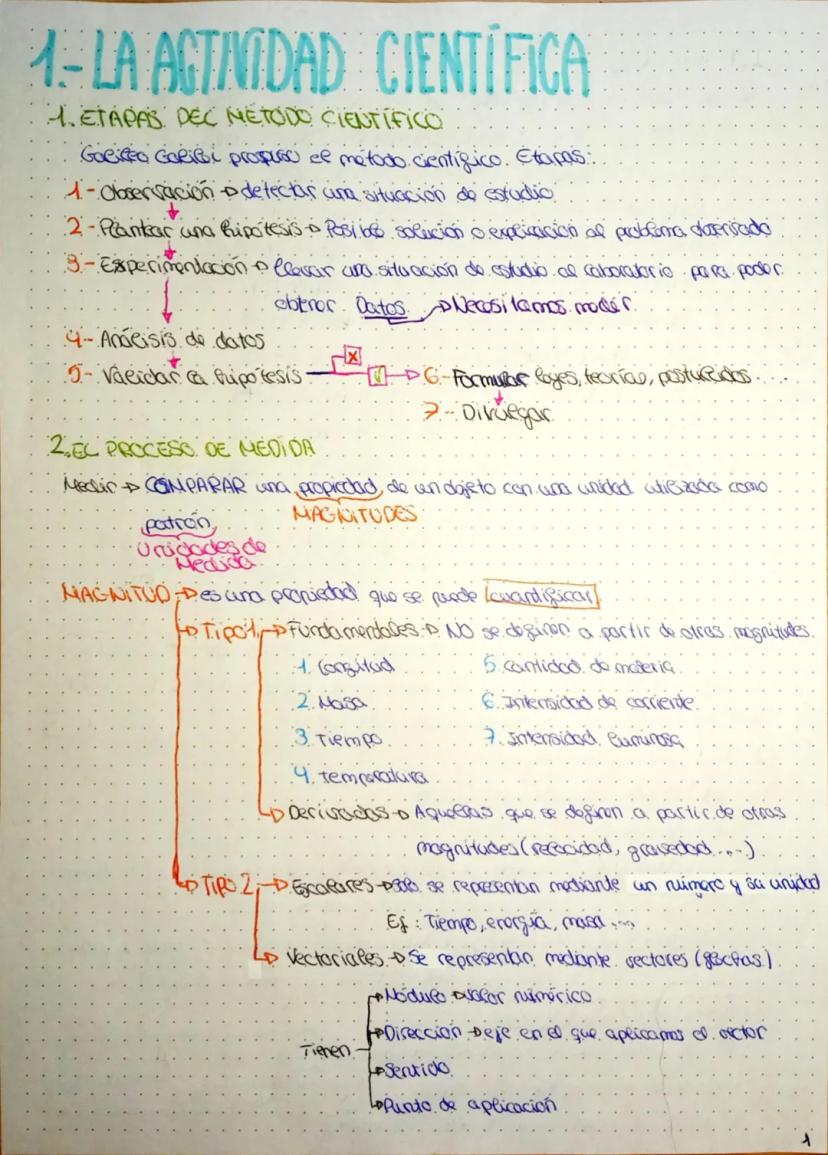 1.- LA ACTIVIDAD CIENTÍFICA
1. ETAPAS DEL MÉTODO CIENTÍFICO
Galileo Galilei propuso el método científico. Etapas:
1- Observación → detectar una situación de estudio
2- Plantear una hipótesis → Posible solución o explicación al problema observado
3- Experimentación → llevar una situación de estudio al laboratorio para poder
obtener Datos → Necesitamos medir
4- Análisis de datos
5- Validar la hipótesis → 6- Formular leyes, teorías, postulados...
7- Divulgar
2. EL PROCESO DE MEDIDA
Medir → COMPARAR una propiedad de un objeto con una unidad utilizada como
MAGNITUDES
patrón
Unidades de
Medida
MAGNITUD → es una propiedad que se puede cuantificar
→ TIPO 1 → Fundamentales → NO se definen a partir de otras magnitudes.
1. Longitud 5. Cantidad de materia
2. Masa 6. Intensidad de corriente
3. Tiempo 7. Intensidad luminosa
4. temperatura
→ Derivadas → Aquellas que se definen a partir de otras
magnitudes (velocidad, gravedad...)
→ TIPO 2 → Escalares → Solo se representan mediante un número y su unidad
Ej: Tiempo, energía, masa...
→ Vectoriales → Se representan mediante vectores (flechas)
→ Módulo → valor numérico
Tienen → Dirección → eje en el que aplicamos el vector
→ Sentido
→ Punto de aplicación
1